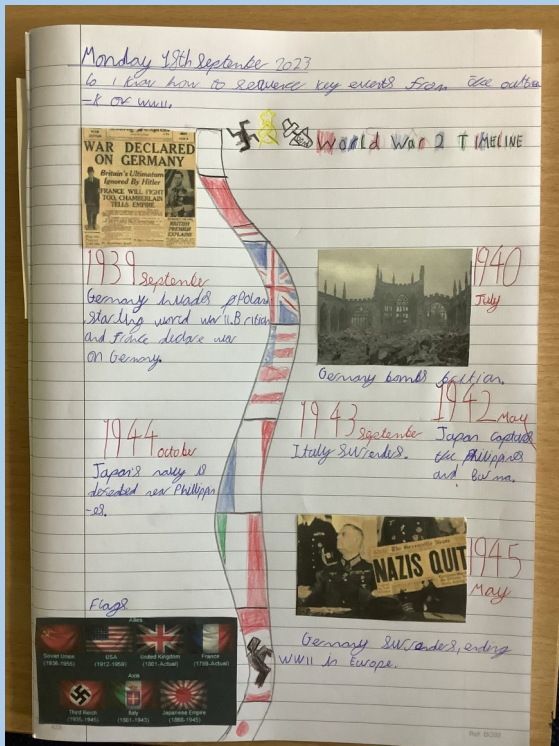 Monday 18th September 2023
to know how to sequence key events from the outbrea
-k of WWII.
World War 2 TIMELINE
WAR DECLARED
ON GERMANY
Britain's Ultimatum
Ignored By Hitler
FRANCE WILL FIGHT
TOO, CHAMBERLAIN
TELLS EMPIRE
BRITISH
PREMIER
EXPLAINS
1939 September
Germany invades Poland
starting world war II. Britian
and france declare war
on Germany.
1940
July
Germany bombs
1942 May
Japan captures
the philippines
and Burma.
1943 September
Italy Surenders.
1944 october
Japan's navy is
deceated near Phillippin
-es.
NAZIS QUIT
1945
May
Germany Surenders, ending
WWII in Europe.
Flags
Allies
Soviet Union
(1936-1955)
USA
(1912-1959)
United Kingdom
(1801-Actual)
France
(1794-Actual)
Axis
Third Reich
(1935-1945)
Italy
(1861-1943)
Japanese Empire
(1868-1945)